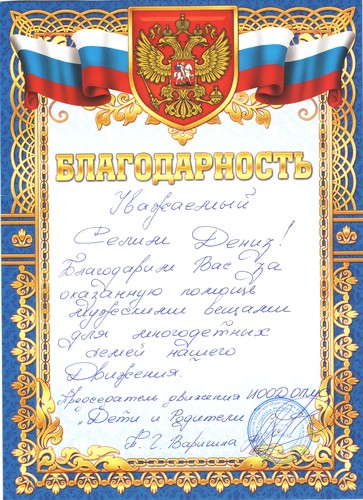 БЛАГОДАРНОСТЬ
Уважаемый
Селим Дениз!
Благодарим Вас за
оказанную помощь
нужными вещами
для многодетных
семей нашего
Движения.
Председатель движения
"Дети и Родители"
Т. Г. Варишна